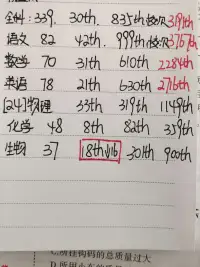 全科: 339. 30th. 835th 校次 3191th
语文 82 42th. 999th 校次 3767th
数学 70 31th 610th 2284th
英语 78 21th 630th 2716th
[24]物理 33th 319th 1149th
化学 48 8th 82th 339th
生物 37 18th 301th 900th
C.所挂钩码的总质量过大
D.所用小车的质量过大